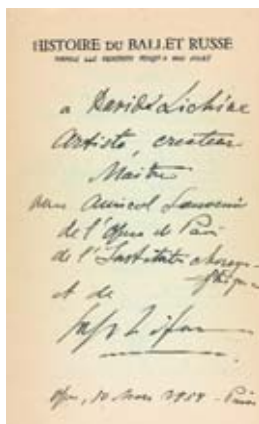 HISTOIRE DU BALLET RUSSE
DEPUIS LES ORIGINES JUSQU'A NOS JOURS
a David Lichine
Artiste, createur
Maitre
avec Amical Souvenir
de l'Opera de Paris
de l'Institut choregra-
phique
et de
Serge Lifar
Opera, 10 Mars 1958 - Paris